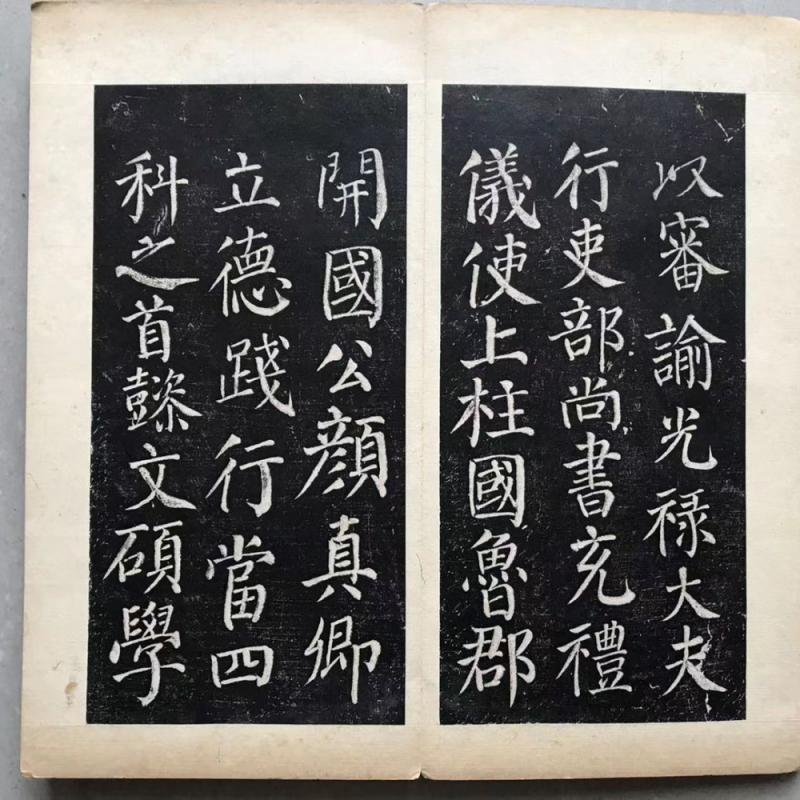 以審諭光禄大夫
行吏部尚書充禮
儀使上柱國魯郡
開國公顔真卿
立德踐行當四
科之首懿文碩學